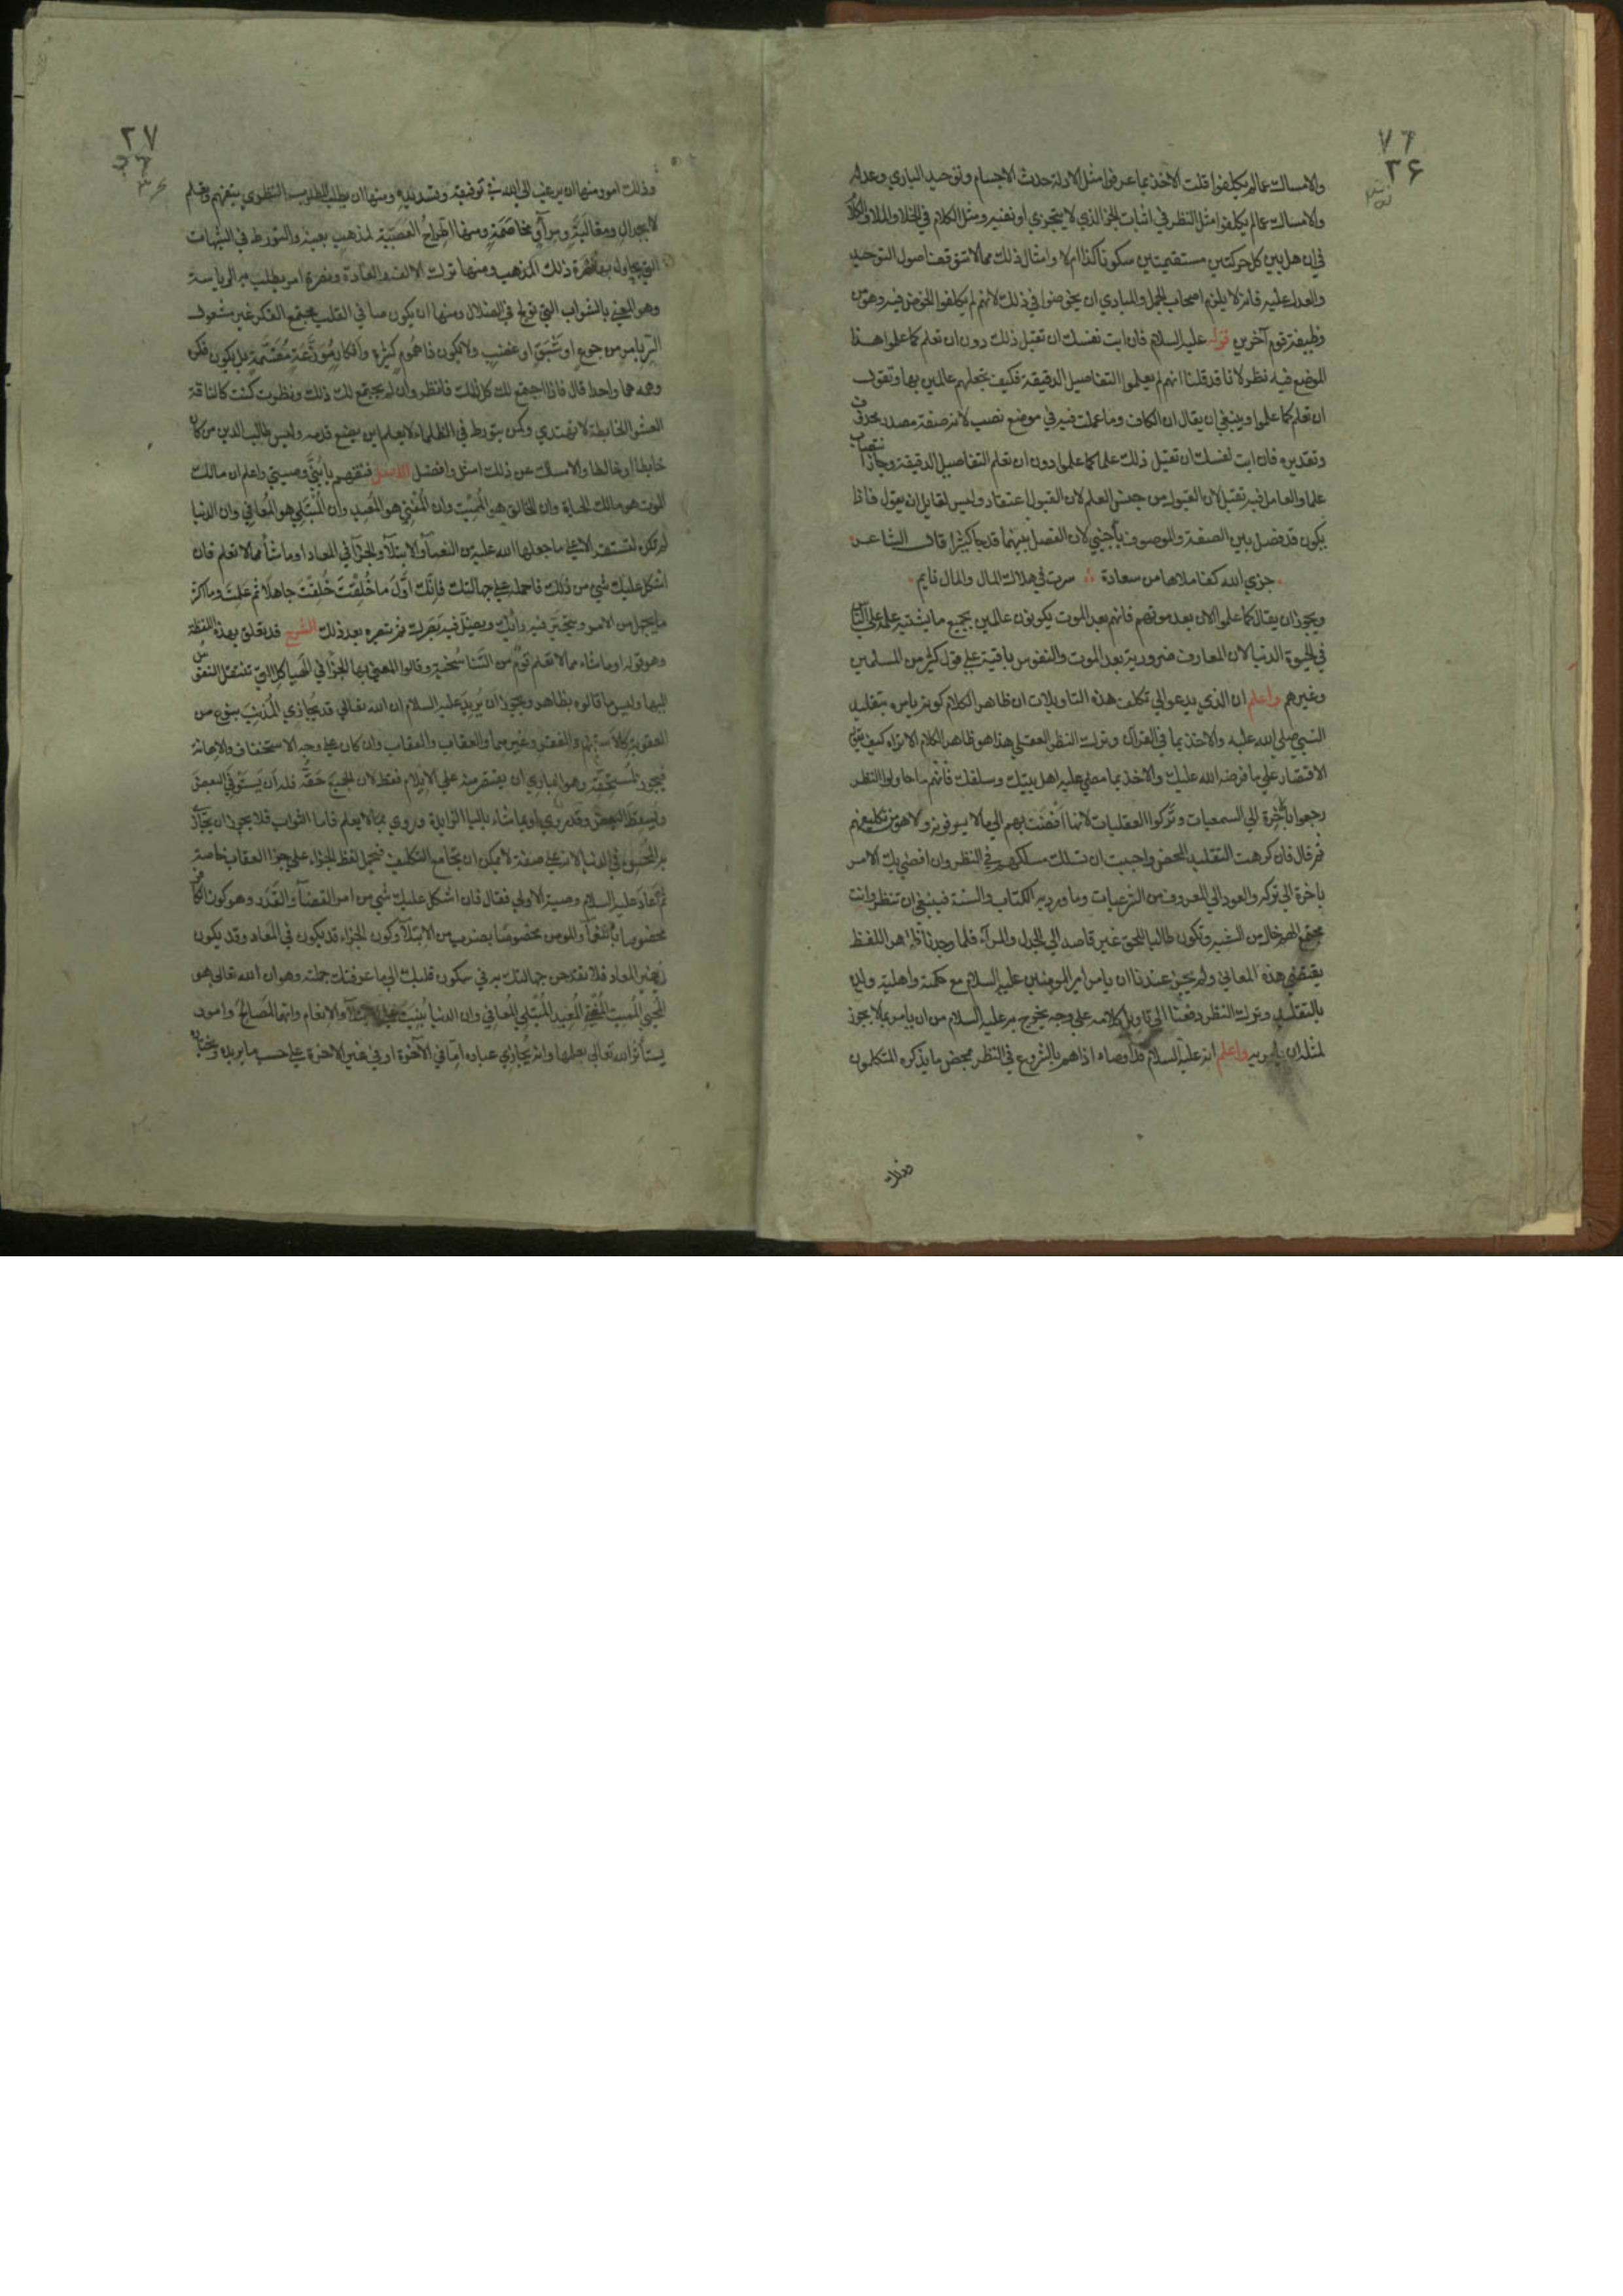 ٧٦
٢۶
والامساك عما لم يكلفوا قلت الاخذ بما عرفوا مثل الادلة حدث الاجسام وتوحيد الباري وعدله
والامساك عما لم يكلفوا مثل النظر في اثبات الجزء الذي لا يتجزي او نفيه ومثل الكلام في الخلا والملا والكلام
في ان هل بين كل حركتين مستقيمتين سكون ام لا وامثال ذلك مما لا تتوقف اصول التوحيد
والعدل عليه فانه لا يلزم اصحاب الجمل والمبادي ان يخوضوا في ذلك لانهم لم يكلفوا الخوض فيه وهو من
وظيفة قوم آخرين قوله عليه السلام فان ابت نفسك ان تقبل ذلك دون ان تعلم كما علموا هذا
الموضع فيه نظر لانا قد قلنا انهم لم يعلموا التفاصيل الدقيقة فكيف يجعلهم عالمين بها وتقول
ان تعلم كما علموا وينبغي ان يقال ان الكاف وما عملت فيه في موضع نصب لانه صفة مصدر محذوف
وتقديره فان ابت نفسك ان تقبل ذلك علما كما علموا دون ان تعلم التفاصيل الدقيقة وجاز انتصاب
علما والعامل فيه تقبل لان القبول من جنس العلم لان القبول اعتقاد وليس لقايل ان يقول فاذا
يكون قد فصل بين الصفة والموصوف باجنبي لان الفصل بينهما قد جا كثيرا قال الشاعر
جزي الله كفا ملاها من سعادة سرت في هلاك المال والمال نايم
ويجوز ان يقال كما علموا الان بعد موتهم فانهم بعد الموت يكونون عالمين بجميع ما يشتبه علمه علي الناس
في الحيوة الدنيا لان المعارف ضرورية بعد الموت والنفوس باقية علي قول كثير من المسلمين
وغيرهم واعلم ان الذي يدعو الي تكلف هذه التاويلات ان ظاهر الكلام كونه يامره بتقليد
النبي صلي الله عليه والاخذ بما في القرآن وترك النظر العقلي هذا هو ظاهر الكلام الا تراه كيف يقول
الاقتصار علي ما فرضه الله عليك والاخذ بما مضي عليه اهل بيتك وسلفك فانهم ما حاولوا النظر
رجعوا باخرة الي السمعيات وتركوا العقليات لانها افضت بهم الي ما لا يعرفونه ولا هو من تكليفهم
ثم قال فان كرهت التقليد المحض واحببت ان تسلك مسلكهم في النظر وان افضي بك الامر
باخرة الي تركه والعود الي المعروف من الشرعيات وما ورد به الكتاب والسنة فينبغي ان تنظر وانت
مجتمع الهم خال من الشبه وتكون طالبا للحق غير قاصد الي الجدل والمراء فلما وجدنا ظاهر اللفظ
يقتضي هذه المعاني ولم يجز عندنا ان يامر امير المومنين عليه السلام مع حكمته واهلية ولده
بالتقليد وترك النظر دفعنا الي تاويل كلامه علي وجه يخرج به عليه السلام من ان يامر بما لا يجوز
لمثله ان يامر به واعلم انه عليه السلام قد اوصاه اذا هم بالشروع في النظر بمحض ما يذكره المتكلمون
وذلك
٢٧
وذلك امور منها ان يرغب الي الله في توفيقه وتسديده ومنها ان يطلب المطلوب النظري بتفهم وتعلم
لا بجدال ومغالبة ومراء ومخاصمة ومنها اطراح العصبية لمذهب بعينه والتورط في الشبهات
التي يحاول بها نصرة ذلك المذهب ومنها ترك الالف والعادة ونصرة امر يطلب به الرياسة
وهو المعني بالشوايب التي تولج في الضلال ومنها ان يكون صافي القلب مجتمع الفكر غير مشغول
السر بامر من جوع او شبق او غضب ولا يكون ذا هموم كثيرة وافكار موزعة مقسمة بل يكون فكره
وهمه هما واحدا قال فاذا اجتمع لك كل ذلك فانظر وان لم يجتمع لك ذلك ونظرت كنت كالناقة
العشوا الخابطة لا تهتدي وكمن يتورط في الظلماء لا يعلم اين يضع قدمه وليس طالب الدين من كان
خابطا او خالطا والامساك عن ذلك امثل وافضل الاصل فتفهم يا بني وصيتي واعلم ان مالك
الموت هو مالك الحياة وان الخالق هو المميت وان المفني هو المعيد وان المبتلي هو المعافي وان الدنيا
لم تكن لتستقر الا علي ما جعلها الله عليه من النعماء والابتلاء والجزآ في المعاد او ما شاء مما لا تعلم فان
اشكل عليك شي من ذلك فاحمله علي جهالتك فانك اول ما خلقت خلقت جاهلا ثم علمت وما اكثر
ما يجهل من الامر ويتحير فيه رايك ويضل فيه بصرك ثم تبصره بعد ذلك الشرح قد تعلق بهذه اللفظة
وهو قوله او ما شاء مما لا تعلم قوم من التناسخية وقالوا المعني بها الجزآ في الهياكل التي تنتقل النفوس
اليها وليس ما قالوه بظاهر ويجوز ان يريد عليه السلام ان الله تعالي قد يجازي المذنب بنوع من
العقوبة كالاسقام والفقر وغيرهما والعقاب وان كان علي وجه الاستخفاف والاهانة
فيجوز لمستحقه وهو الباري ان يقتصر منه علي الايلام فقط لان الجميع حقه فله ان يستوفي البعض
ويسقط البعض وقد روي او بما شاء بالبا الزايدة وروي بما لا يعلم فاما الثواب فلا يجوز ان يجازي
به المحسن في الدنيا لانه علي صفة لا يمكن ان تجامع التكليف فيحمل لفظ الجزاء علي جزآ العقاب خاصة
ثم اعاد عليه السلام وصيته الاولي فقال فان اشكل عليك شي من امر القضآ والقدر وهو كون الكافر
مخصوصا بالنعماء والمومن مخصوصا بضرب من الابتلآ وكون الجزاء قد يكون في المعاد وقد يكون
في غير المعاد فلا تقدحن جهالتك به في سكون قلبك الي ما عرفتك جملته وهو ان الله تعالي هو
المحيي المميت المفني المعيد المبتلي المعافي وان الدنيا بنيت علي الابتلآ والانعام وانهما لمصالح وامور
يستاثر الله تعالي بعلمها وانه يجازي عباده اما في الآخرة او في غير الاخرة علي حسب ما يريده ويختاره